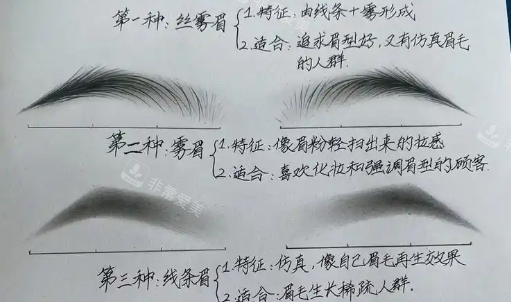 第一种：丝雾眉 1.特征：由线条＋雾形成
2.适合：追求眉型好，又有仿真眉毛
的人群.
第二种：雾眉 1.特征：像眉粉轻扫出来的妆感
2.适合：喜欢化妆和强调眉型的顾客.
非常爱美
第三种：线条眉 1.特征：仿真，像自己眉毛再生效果
2.适合：眉毛生长稀疏人群.